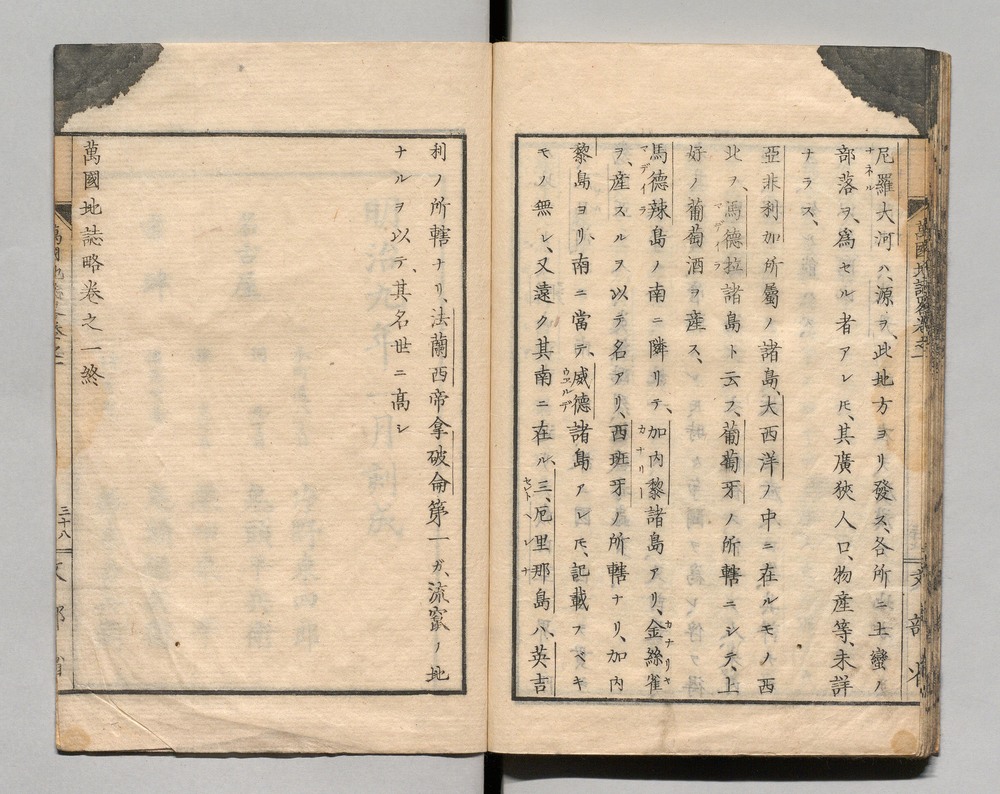 尼羅大河ハ、源ヲ、此地方ヨリ發ス、各所ニ土蠻ノ
ナネル
部落ヲ、爲セル者アレ𪜈、其廣狹人口、物産等、未詳
ナラス、
亞非利加所屬ノ諸島、大西洋ノ中ニ在ルモノノ西
北ヲ、馬德拉諸島ト云フ、葡萄牙ノ所轄ニシテ、上
マデイラ
好ノ葡萄酒ヲ産ス、
馬德辣島ノ南ニ隣リテ、加內黎諸島アリ、金絲雀
マデイラ
カナリー
カナリヤ
ヲ、産スルヲ以テ名アリ、西班牙ノ所轄ナリ、加內
黎島ヨリ、南ニ當テ、威德諸島アレ𪜈、記載スベキ
ウェルデ
モノ無シ、又遠ク其南ニ在ル、三、厄里那島ハ、英吉
セントヘレナ
利ノ所轄ナリ、法蘭西帝拿破侖第一ガ、流竄ノ地
ナルヲ以テ、其名世ニ高シ
萬國地誌略卷之一終
三十八